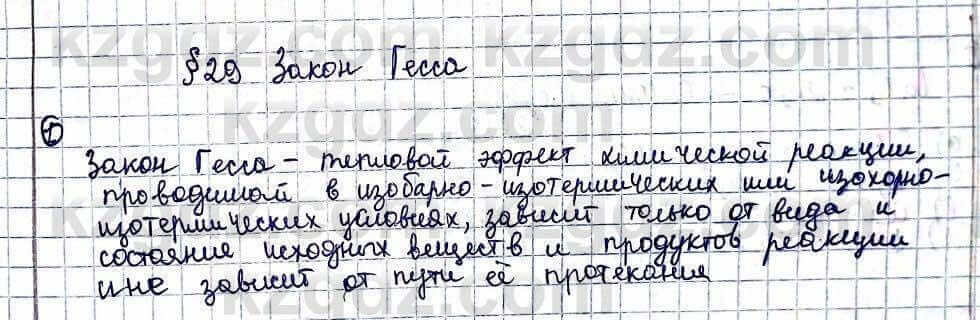 kzgdz.com kzgdz.com kzgdz.com
§29 Закон Гесса
①
Закон Гесса - тепловой эффект химической реакции,
проводимой в изобарно-изотермических или изохорно-
изотермических условиях, зависит только от вида и
состояние исходных веществ и продуктов реакции
и не зависит от пути её протекания